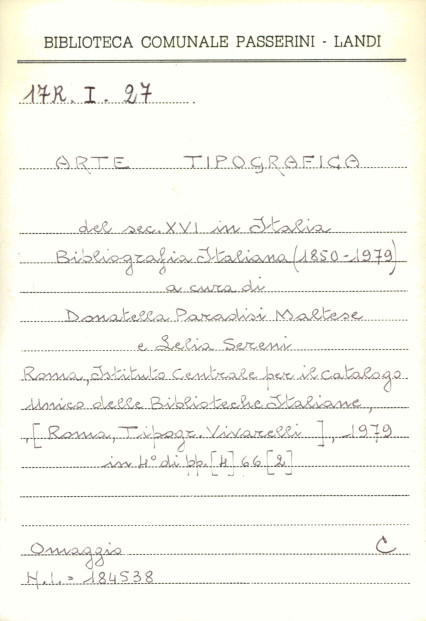 BIBLIOTECA COMUNALE PASSERINI - LANDI
17R. I. 27
ARTE TIPOGRAFICA
del sec. XVI in Italia
Bibliografia Italiana (1850-1979)
a cura di
Donatella Paradisi Maltese
e Lelia Sereni
Roma, Istituto Centrale per il Catalogo
Unico delle Biblioteche Italiane,
,[Roma, Tipogr. Vivarelli], 1979
in 4° di pp. [4] 66 [2]
Omaggio C
N.I. = 184538